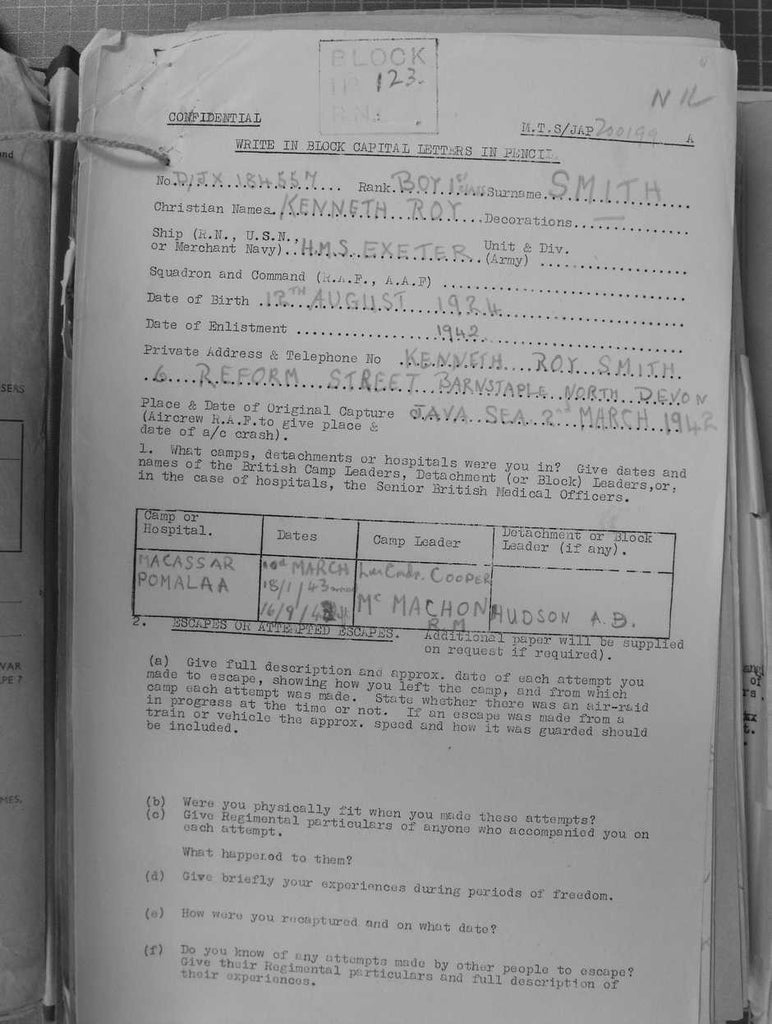 BLOCK
123.
NIL
CONFIDENTIAL
M.T.S/JAP 200199 A
WRITE IN BLOCK CAPITAL LETTERS IN PENCIL
No. D/JX 184557 Rank BOY 1st Surname SMITH
Christian Names KENNETH ROY Decorations —
Ship (R.N., U.S.N. Unit & Div.
or Merchant Navy) H.M.S. EXETER (Army)
Squadron and Command (R.A.F., A.A.F)
Date of Birth 12TH AUGUST 1924
Date of Enlistment 1942
Private Address & Telephone No KENNETH ROY SMITH
6 REFORM STREET BARNSTAPLE NORTH DEVON
Place & Date of Original Capture JAVA SEA 2nd MARCH 1942
(Aircrew R.A.F. to give place &
date of a/c crash).
1. What camps, detachments or hospitals were you in? Give dates and
names of the British Camp Leaders, Detachment (or Block) Leaders, or,
in the case of hospitals, the Senior British Medical Officers.
Camp or Hospital. Dates Camp Leader Detachment or Block Leader (if any).
MACASSAR MARCH Lieu Cmdr. COOPER
POMALAA 18/1/43 Mc MACHON HUDSON A.B.
16/9/43 R.M
2. ESCAPES OR ATTEMPTED ESCAPES. Additional paper will be supplied
on request if required).
(a) Give full description and approx. date of each attempt you
made to escape, showing how you left the camp, and from which
camp each attempt was made. State whether there was an air-raid
in progress at the time or not. If an escape was made from a
train or vehicle the approx. speed and how it was guarded should
be included.
(b) Were you physically fit when you made these attempts?
(c) Give Regimental particulars of anyone who accompanied you on
each attempt.
What happened to them?
(d) Give briefly your experiences during periods of freedom.
(e) How were you recaptured and on what date?
(f) Do you know of any attempts made by other people to escape?
Give their Regimental particulars and full description of
their experiences.